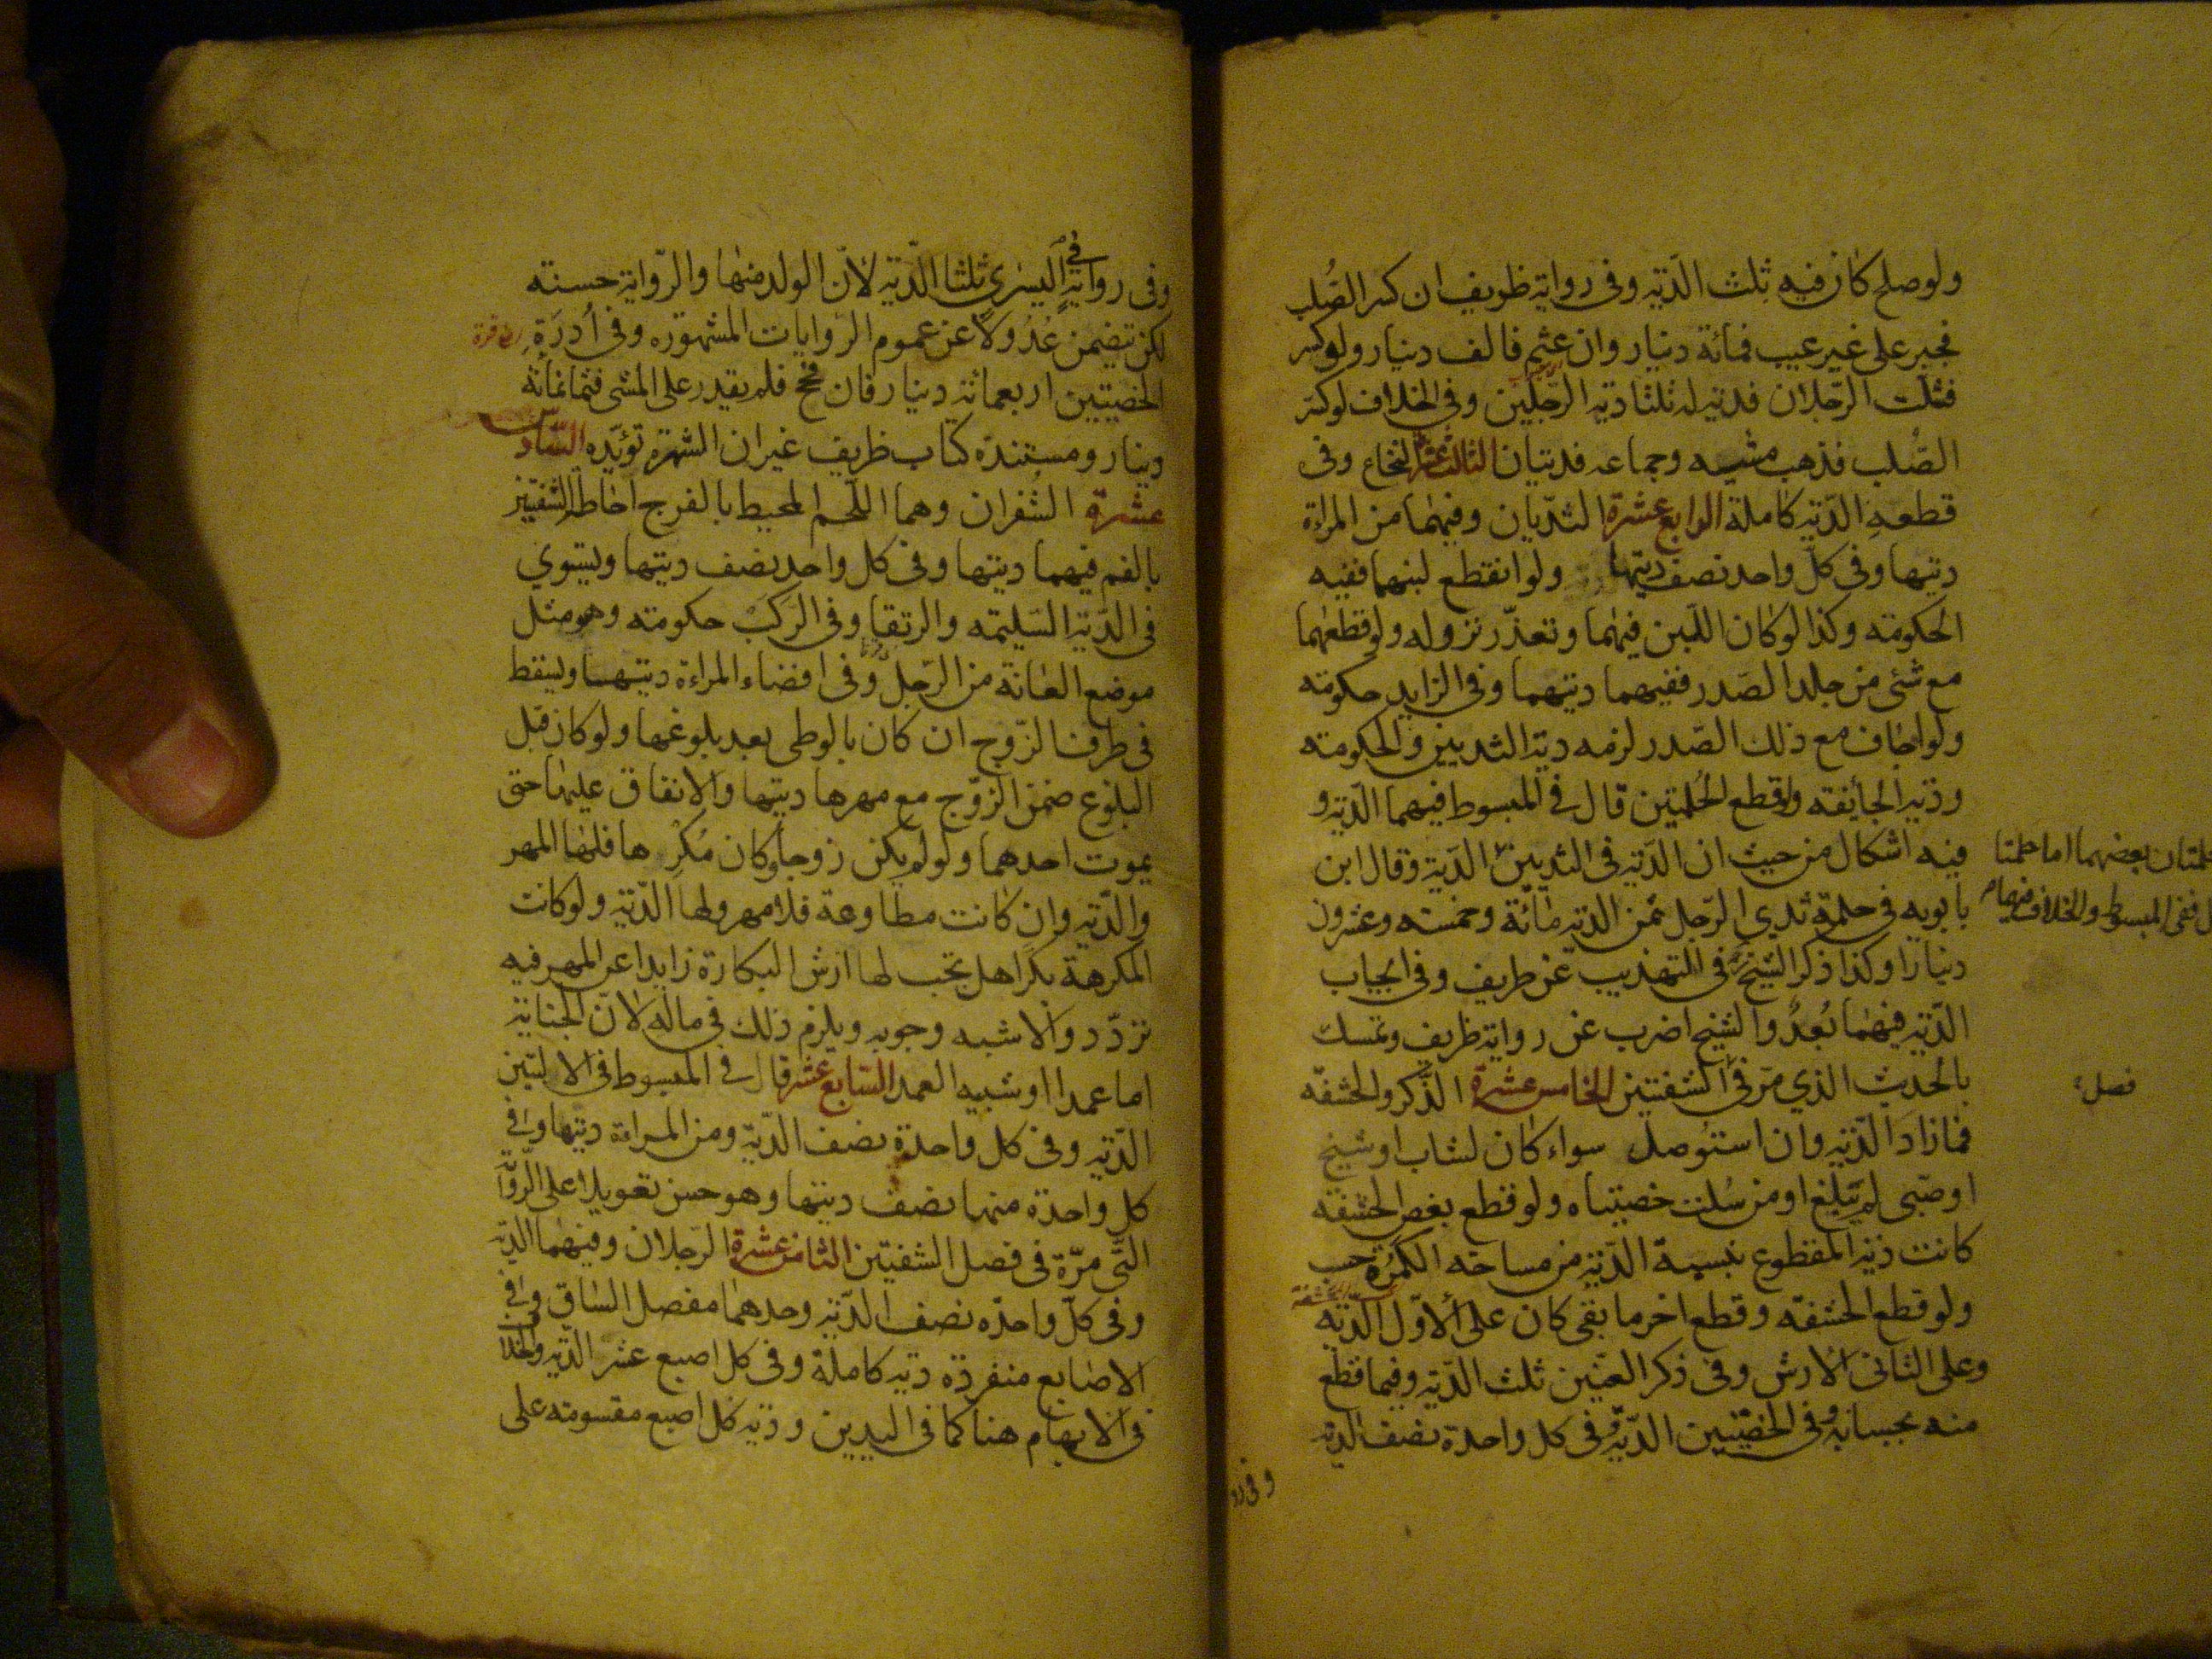 ولو صلح كان فيه ثلث الدّيته وفى رواية ظريف ان كسر الصُلب
فجبر على غير عيب فمائة دينار وان عثم فالف دينار ولو كسر
فشلّت الرّجلان فديته له ثلثا دية الرّجلين وفى الخلاف لو كسر
الصّلب فذهب مشيه وجماعه فديتان الثالث عشر النخاع وفى
قطعه الدّيته كاملة الرابع عشرة الثديان وفيهما من المراة
ديتها وفى كلّ واحد نصف ديتها ولو انقطع لبنهما ففيه
الحكومته وكذا لو كان اللّبن فيهما وتعذّر نزوله ولو قطعهما
مع شئ من جلد الصّدر ففيهما ديتهما وفى الزايد حكومته
ولو اجاف مع ذلك الصّدر لزمه دية الثديين والحكومته
ودية الجائفته ولو قطع الحُلمتين قال فى المبسوط فيهما الدّيته و
فيه اشكال من حيث ان الدّيته فى الثديين الدّية وقال ابن
بابويه فى حلمة ثدي الرّجل ثمن الدّيته مائة وخمسته وعشرون
دينارا وكذا ذكر الشيخ فى التهذيب عن ظريف وفى ايجاب
الدّيته فيهما بُعدٌ والشيخ اضرب عن رواية ظريف وتمسك
بالحديث الذي مرّ فى الشفتين الخامس عشرة الذّكر والحشفته
فما زاد الدّيته وان استُوصل سواء كان لشاب او شيخ
او صّبى لم يبلغ او من سُلّت خصيتاه ولو قطع بعض الحشفته
كانت دية المقطوع بنسبة الدّيته من مساحته الكَمَرَة حسب
ولو قطع الحشفته وقطع اخر ما بقى كان على الاوّل الدّيته
وعلى الثانى الارش وفى ذكر العنّين ثلث الدّيته وفيما قطع
منه بحسابه وفى الخصيّتين الدّية وفى كل واحدة نصف الدّية
وفى رو
حلمتان بعضهما اما حلمتا
ل ففى المبسوط والخلاف فيهما
فصل
وفى رواية فى اليسرى ثلثا الدّيته لانّ الولد منها والرّواية حسنته
لكن تتضمن عُدُولاً عن عموم الرّوايات المشهوره وفى اُدرَةِ
الخصيتين اربعمائة دينار فان فحج فلم يقدر على المشى فثمانمائة
دينار ومستنده كتاب ظريف غير ان الشهرة تؤيّده السّادس
عشرة الشُفران وهما اللّحم المحيط بالفرج احاطة الشفتين
بالفم فيهما ديتها وفى كل واحد نصف ديتها ويستوي
فى الدّيته السّليمته والرتقا وفى الرَكَبْ حكومته وهو مثل
موضع العانة من الرّجل وفى افضاء المراءة ديتها ويسقط
فى طرف الزّوج ان كان بالوطى بعد بلوغها ولو كان قبل
البلوغ ضمن الزّوج مع مهرها ديتها والانفاق عليها حتى
يموت احدهما ولو لم يكن زوجا وكان مُكْرِهاً فلها المهر
والدّيته وان كانت مطاوعة فلا مهر ولها الدّيته ولو كانت
المكرهة بكراً هل تجب لها ارش البكارة زايدا عن المهر فيه
تردّد والاشبه وجوبه ويلزم ذلك فى ماله لانّ الجناية
اما عمدا او شبيه العمد السّابع عشر قال فى المبسوط فى الاليتين
الدّيته وفى كل واحدة نصف الدّيته ومن المراة ديتها وفى
كل واحدة منها نصف ديتها وهو حسن تعويلا على الرّواية
التّى مرّة فى فصل الشفتين الثامن عشرة الرّجلان وفيهما الدّية
وفى كلّ واحدّه نصف الدّيته وحدهما مفصل الساق وفى
الاصابع منفردّه ديه كاملة وفى كل اصبع عشر الدّيته والخلا
فى الابهام هنا كما فى اليدين وديه كل اصبع مقسومته على